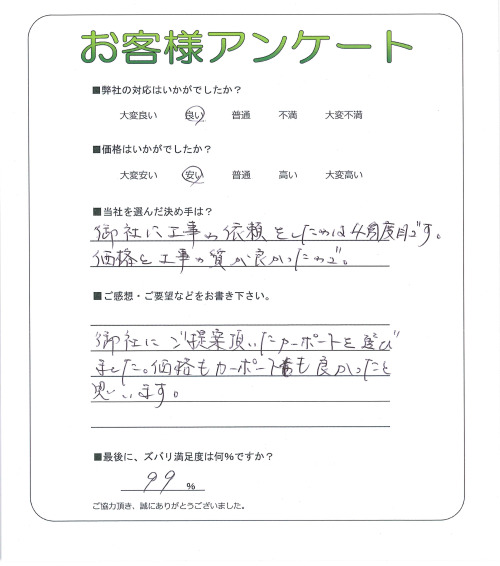 お客様アンケート
■弊社の対応はいかがでしたか？
大変良い 良い 普通 不満 大変不満
■価格はいかがでしたか？
大変安い 安い 普通 高い 大変高い
■当社を選んだ決め手は？
御社に工事の依頼をしたのは4度目です。
価格と工事の質が良かったので。
■ご感想・ご要望などをお書き下さい。
御社にご提案頂いたカーポートを選び
ました。価格もカーポートも良かったと
思います。
■最後に、ズバリ満足度は何％ですか？
99 %
ご協力頂き、誠にありがとうございました。